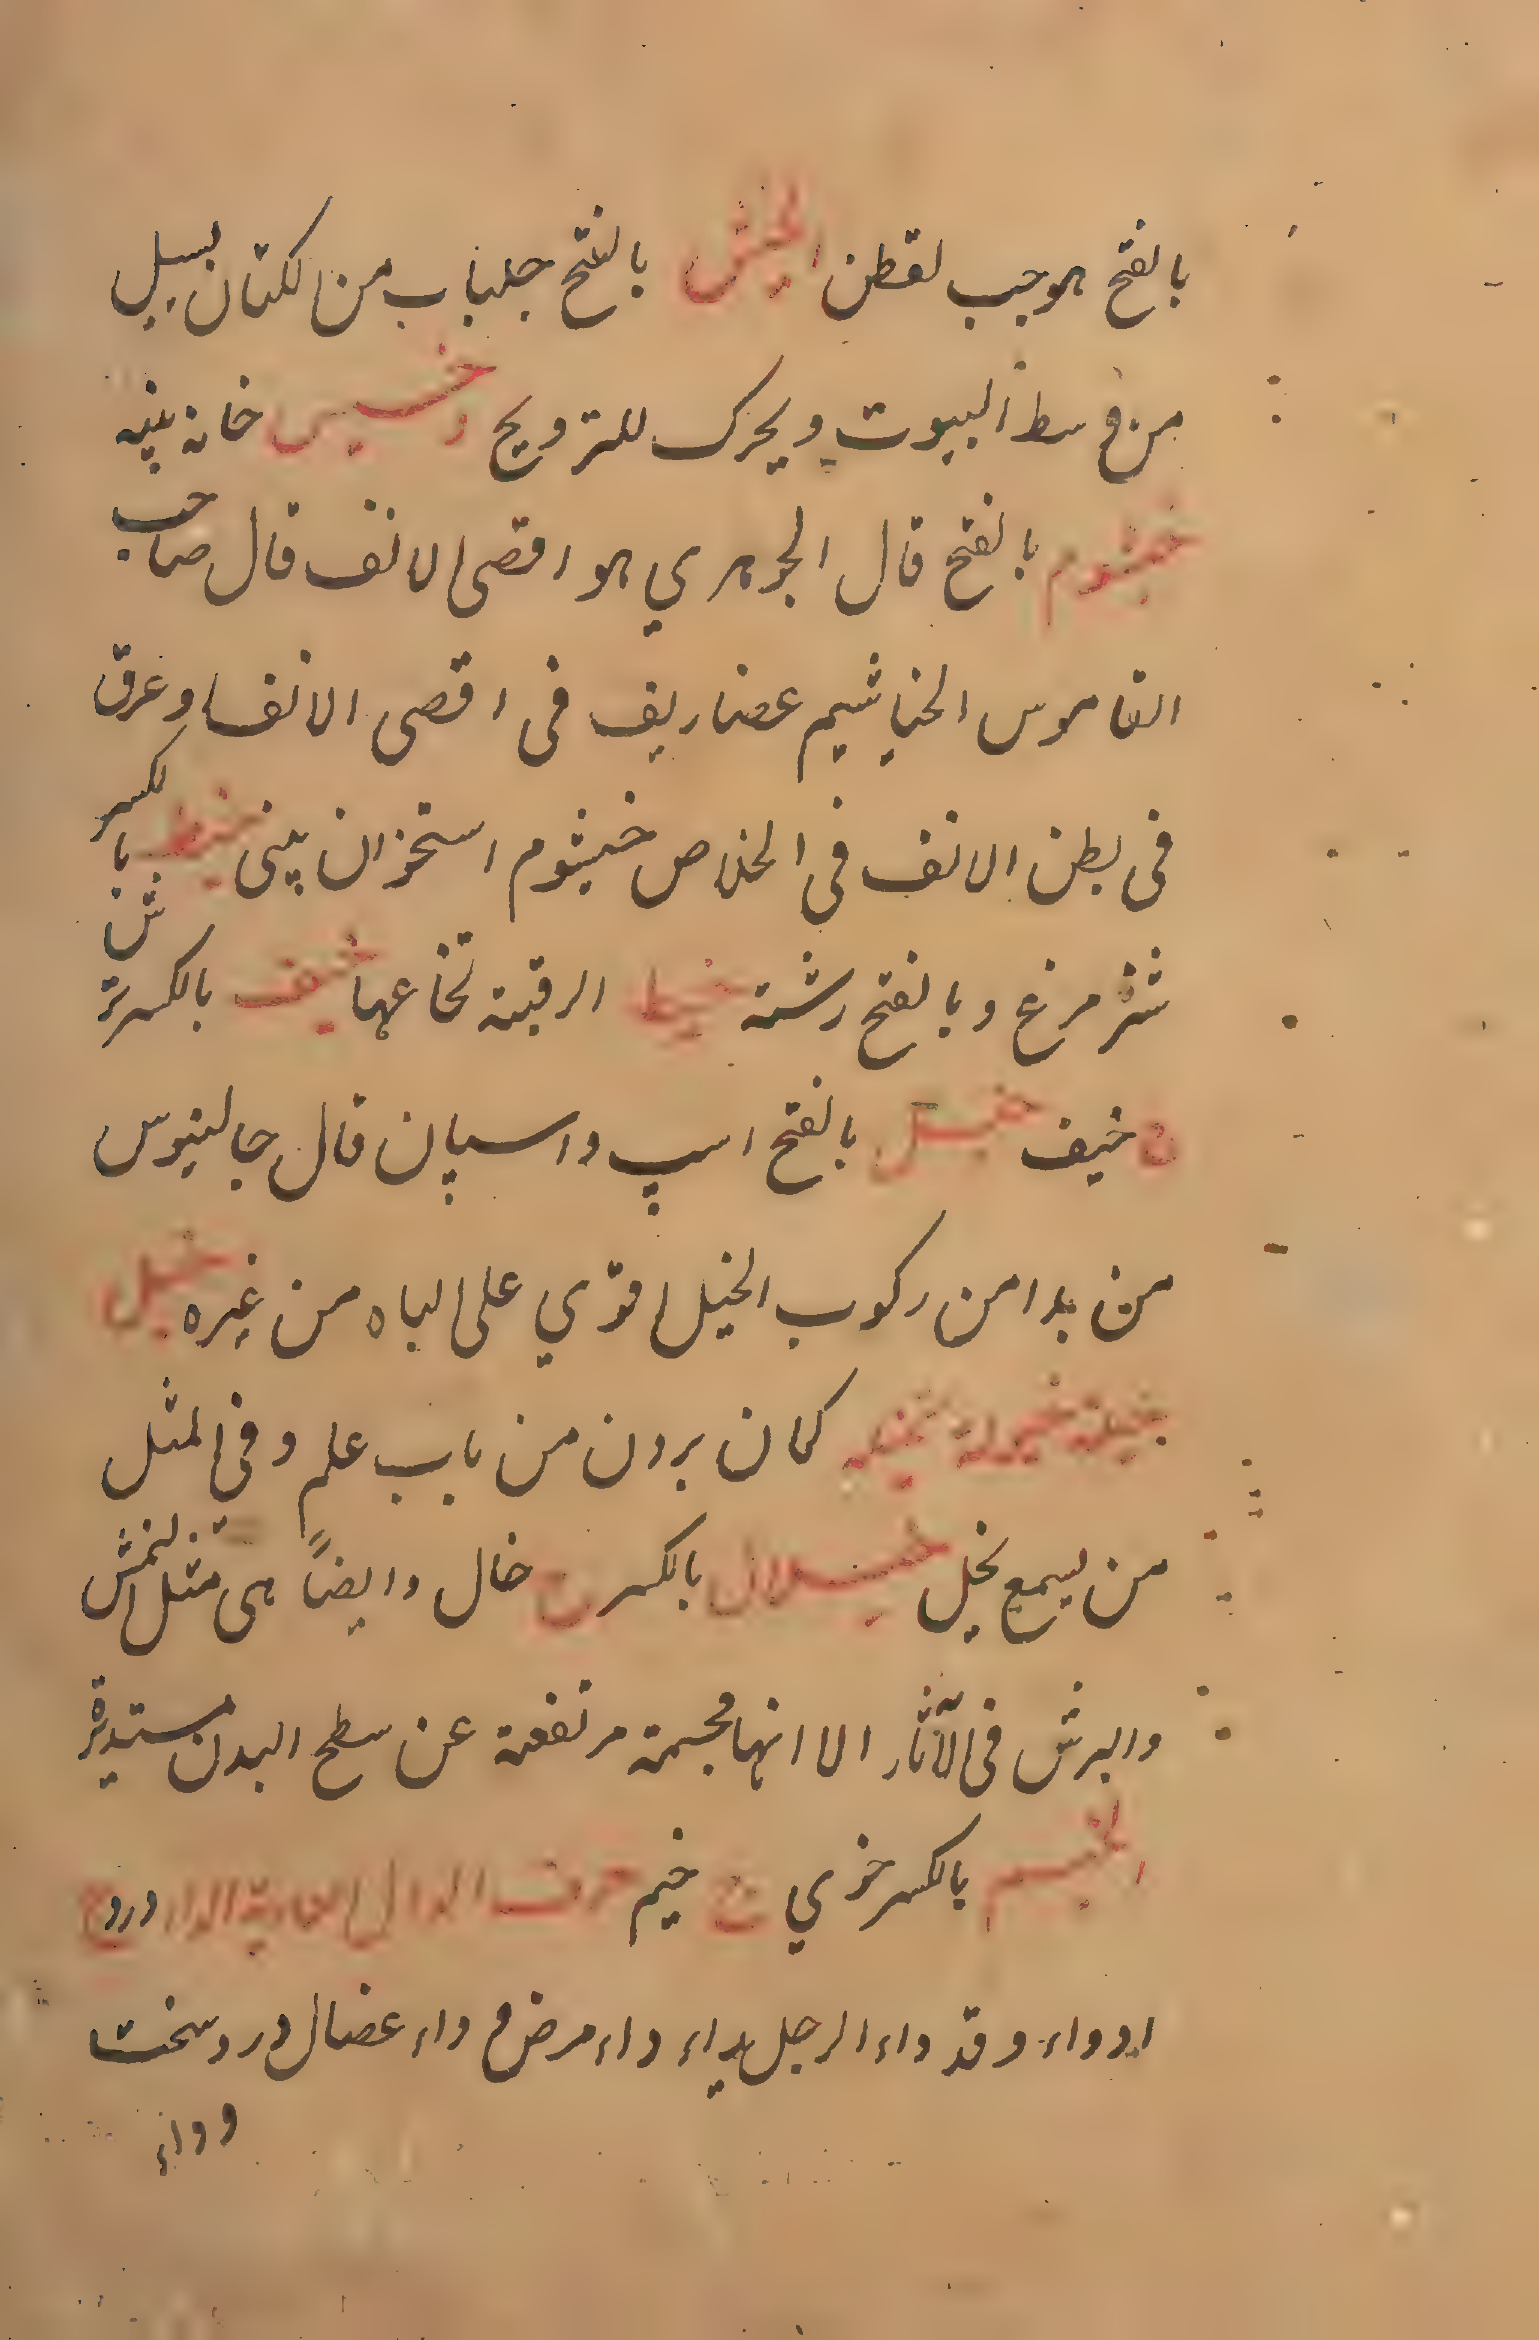 بالفتح الموجب لقطن الخيش بالفتح جلباب من الكتان يسيل
من وسط البيوت ويحرك للترويح و خيس خانه پنبه
خيشوم بالفتح قال الجوهري هو اقصى الانف قال صاحب
القاموس الخياشيم عضاريف فى اقصى الانف او عرق
فى بطن الانف فى الخلاص خيشوم استخوان پينى خيط بالكسر
شتر مرغ و بالفتح رشته خيط الرقبة نخاعها خيف بالكسر ترش
ن خيف خيل بالفتح اسپ واسپان قال جالينوس
من بدا من ركوب الخيل اقوي على الباه من غيره خيل
خيلة خيولة مخيلة كمان بردن من باب علم وفى المثل
من يسمع يخل خيلان بالكسر ج خال وايضاً هى مثل النمش
والبرش فى الآثار الا انها مجسمة مرتفعة عن سطح البدن مستديرة
الخيم بالكسر خوي ج خيم حرف الدال المهملة الداء درد ج
ادواء وقد داء الرجل يداء داء مرض و داء عضال درد سخت
وداء